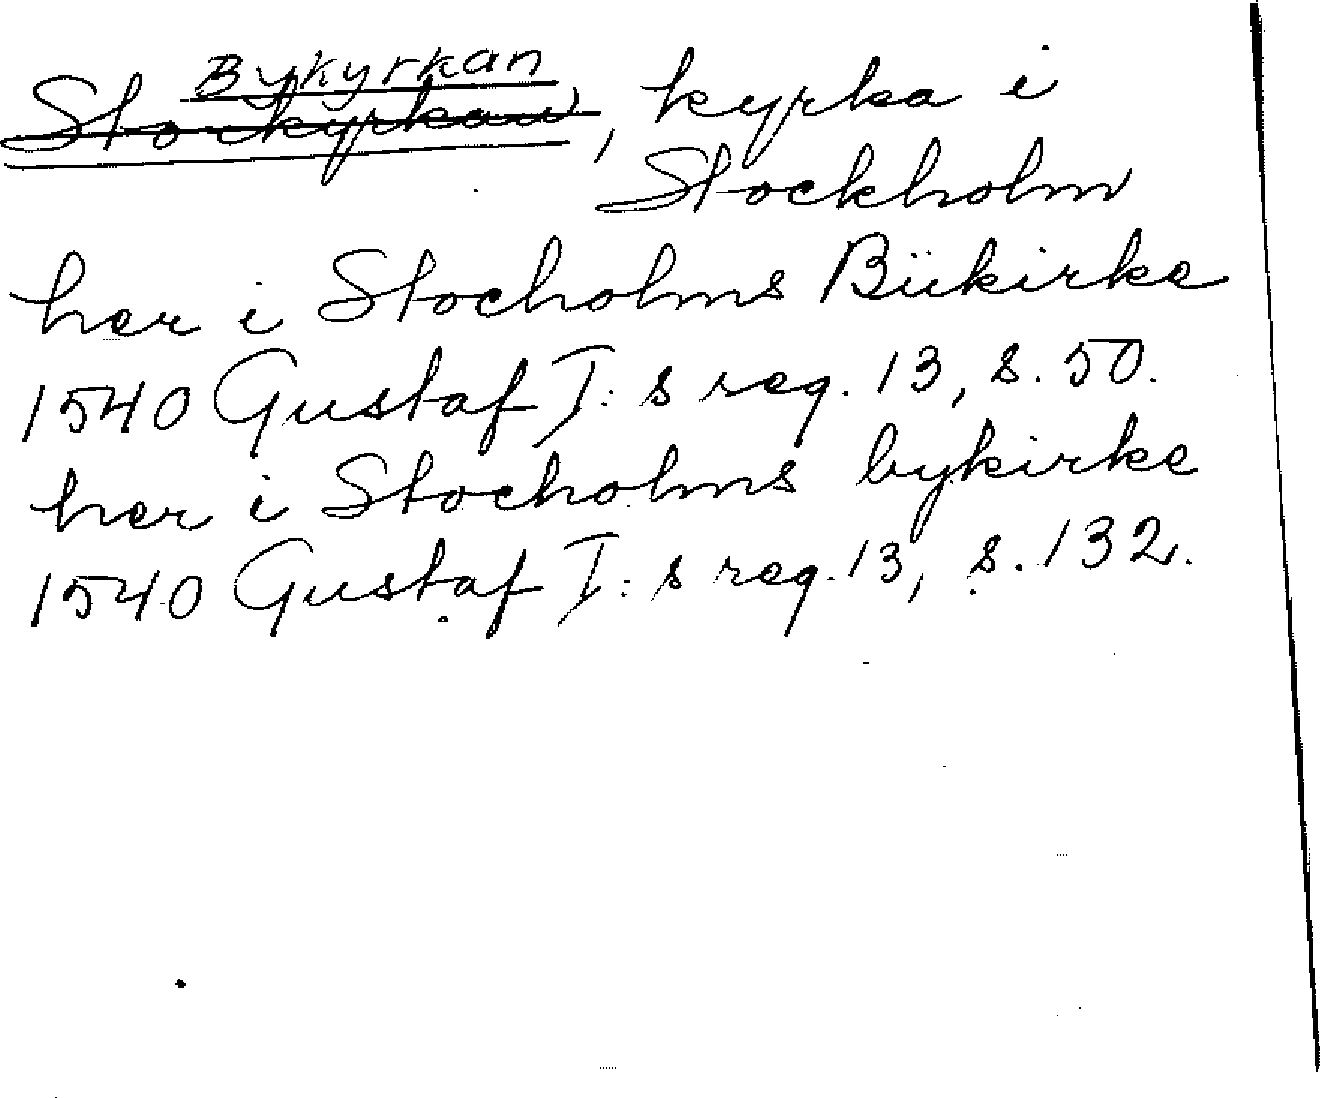 Bykyrkan
Storkyrkan, kyrka i
Stockholm
her i Stocholms Bükirke
1540 Gustaf I:s reg. 13, s. 50.
her i Stocholms bykirke
1540 Gustaf I:s reg. 13, s. 132.